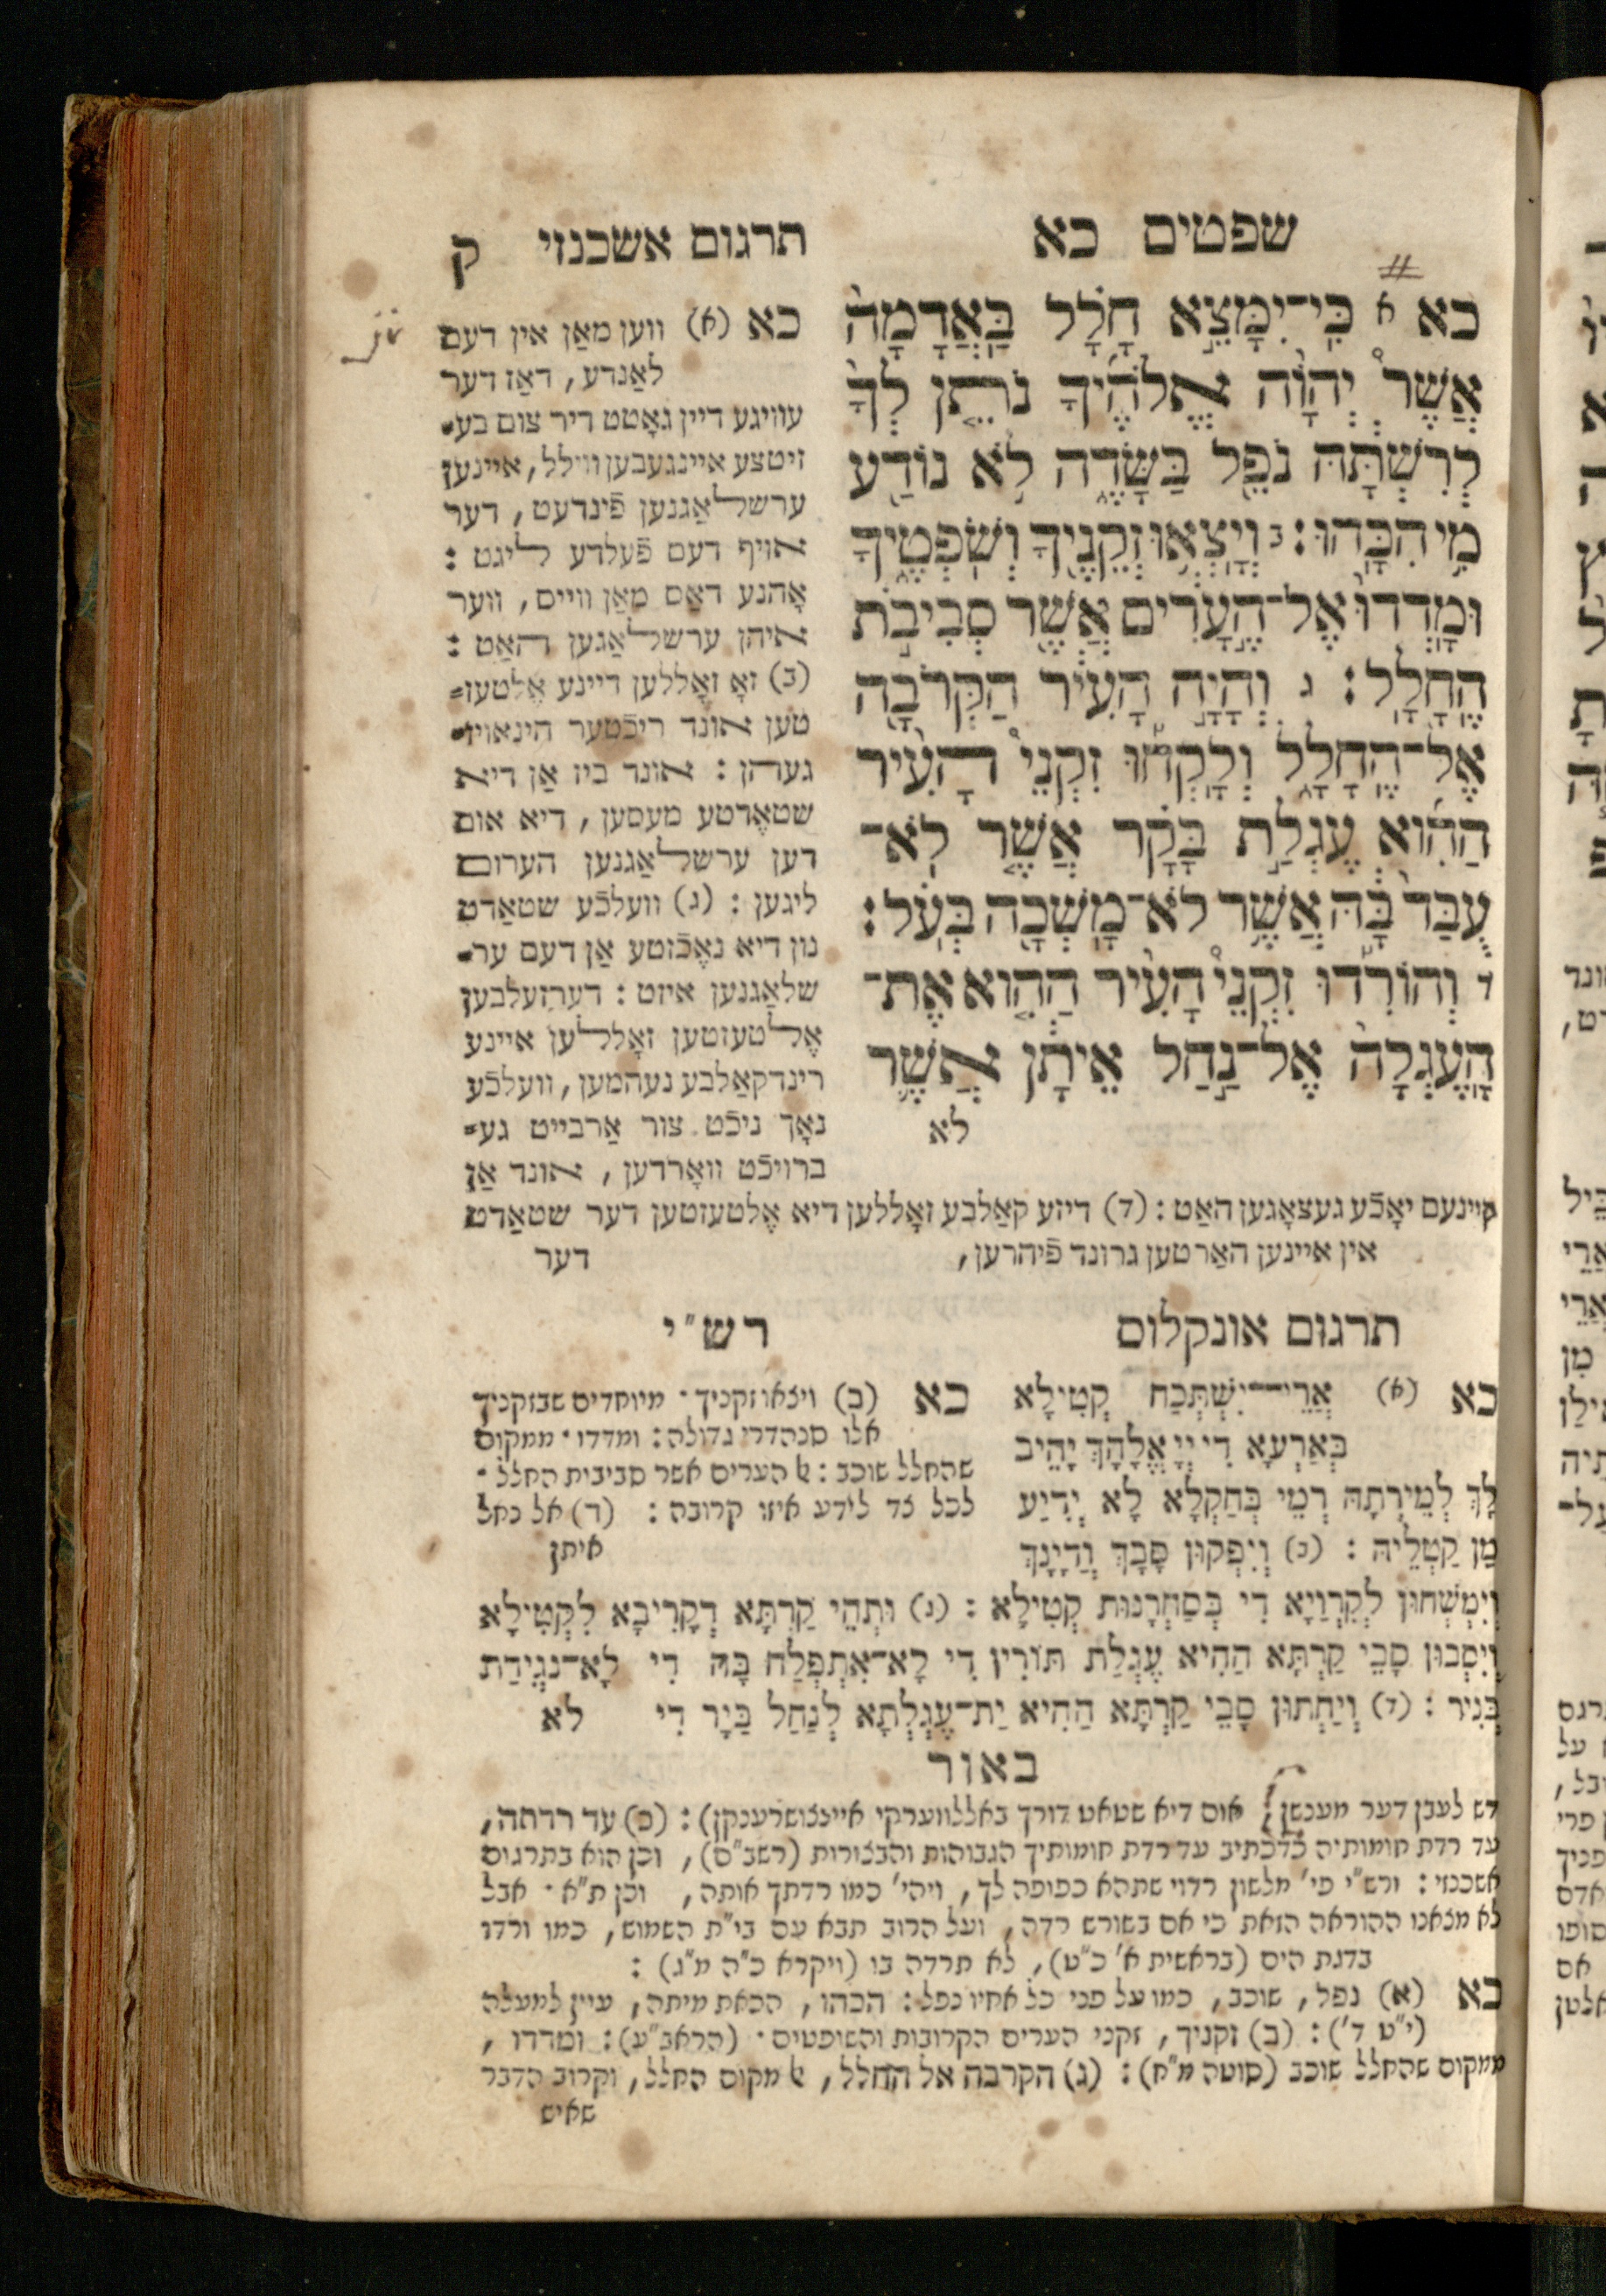 שפטים כא
כא א כִּי־יִמָּצֵא חָלָל בָּאֲדָמָה
אֲשֶׁר יְהוָֹה אֱלֹהֶיךָ נֹתֵן לְךָ
לְרִשְׁתָּהּ נֹפֵל בַּשָּׂדֶה לֹא נוֹדַע
מִי הִכָּהוּ׃ ב וְיָצְאוּ זְקֵנֶיךָ וְשֹׁפְטֶיךָ
וּמָדְדוּ אֶל־הֶעָרִים אֲשֶׁר סְבִיבֹת
הֶחָלָל׃ ג וְהָיָה הָעִיר הַקְּרֹבָה
אֶל־הֶחָלָל וְלָקְחוּ זִקְנֵי הָעִיר
הַהִוא עֶגְלַת בָּקָר אֲשֶׁר לֹא־
עֻבַּד בָּהּ אֲשֶׁר לֹא־מָשְׁכָה בְּעֹל׃
ד וְהוֹרִדוּ זִקְנֵי הָעִיר הַהִוא אֶת־
הָעֶגְלָה אֶל־נַחַל אֵיתָן אֲשֶׁר
לא
תרגום אשכנזי ק
כא (א) ווען מאַן אין דעם
לאַנדע, דאַז דער
עוויגע דיין גאָטט דיר צום בע־
זיטצע איינגעבען ווילל, איינען
ערשלאַגנען פֿינדעט, דער
אויף דעם פֿעלדע ליגט :
אָהנע דאַס מאַן ווייס, ווער
איהן ערשלאַגען האַט :
(ב) זאָ זאָללען דיינע אֶלטעז=
טען אונד ריכֿטער הינאויז־
געהן : אונד ביז אַן דיא
שטאֶדטע מעסען, דיא אום
דען ערשלאַגנען הערום
ליגען : (ג) וועלכֿע שטאַדט
נון דיא נאֶכֿזטע אַן דעם ער־
שלאַגנען איזט : דערזעלבען
אֶלטעזטען זאָללען איינע
רינדקאַלבע נעהמען, וועלכֿע
נאָך ניכֿט צור אַרבייט גע=
ברויכֿט וואָרדען, אונד אַן
קיינעם יאָכֿע געצאָגען האַט : (ד) דיזע קאַלבע זאָללען דיא אֶלטעזטען דער שטאַדט
אין איינען האַרטען גרונד פֿיהרען, דער
תרגום אונקלוס
כא (א) אֲרֵי־יִשְׁתְּכַח קְטִילָא
בְּאַרְעָא דִי יְיָ אֱלָהָךְ יָהֵיב
לָךְ לְמֵירְתָהּ רְמֵי בְּחַקְלָא לָא יְדִיַע
מַן קַטְלֵיהּ : (ב) וְיִפְּקוּן סָבָךְ וְדַיָנָךְ
וְיִמְשְׁחוּן לְקִרְוַיָא דִי בְּסַחְרָנוּת קְטִילָא : (ג) וּתְהֵי קַרְתָּא דְקָרִיבָא לִקְטִילָא
וְיִסְבוּן סָבֵי קַרְתָּא הַהִיא עֶגְלַת תּוֹרִין דִי לָא־אִתְפְּלַח בָּהּ דִי לָא־נְגִידַת
בְּנִיר : (ד) וְיַחְתוּן סָבֵי קַרְתָּא הַהִיא יַת־עֶגְלְתָא לְנַחַל בַּיָר דִי לא
רש״י
כא (ב) ויצאו זקניך · מיוחדים שבזקניך
אלו סנהדרי גדולה : ומדדו · ממקום
שהחלל שוכב : אל הערים אשר סביבות החלל ·
לכל צד לידע איזו קרובה : (ד) אל נחל
איתן
באור
דש לעבן דער מענשן אום דיא שטאט דורך באללווערקי איינצושרענקן) : (כ) עד רדתה,
עד רדת חומותיה כדכתיב עד רדת חומותיך הגבוהות והבצורות (רשב״ם), וכן הוא בתרגום
אשכנזי : ורש״י פי׳ מלשון רדוי שתהא כפופה לך, ויהי׳ כמו רדתך אותה, וכן ת״א · אבל
לא מצאנו ההוראה הזאת כי אם בשורש רדה, ועל הרוב תבא עם בי״ת השמוש, כמו ורדו
בדגת הים (בראשית א׳ כ״ט), לא תרדה בו (ויקרא כ״ה מ״ג) :
כא (א) נפל, שוכב, כמו על פני כל אחיו נפל : הכהו, הכאת מיתה, עיין למעלה
(י״ט ד׳) : (ב) זקניך, זקני הערים הקרובות והשופטים · (הראב״ע) : ומדדו,
ממקום שהחלל שוכב (סוטה מ״ה) : (ג) הקרבה אל החלל, אל מקום החלל, וקרוב הדבר
שאיש